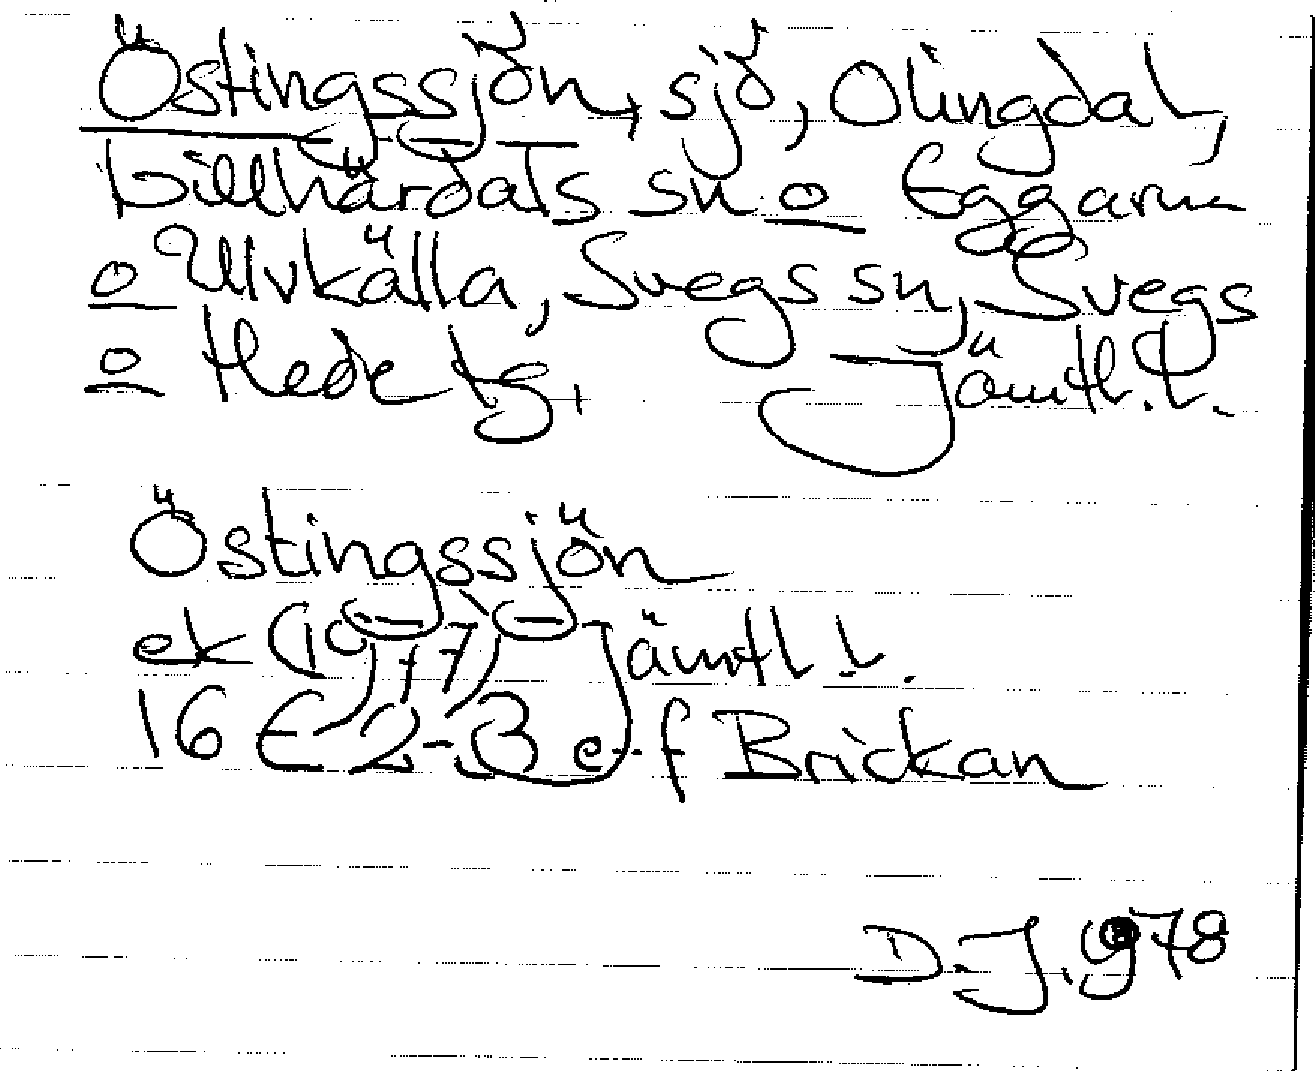 Östingssjön, sjö, Olingdal,
Lillhärdals sn o Eggarna
o Ulvkälla, Svegs sn, Svegs
o Hede tg, Jämtl. l.
Östingssjön
ek (1977) Jämtl l.
16 E 2-3 e-f Brickan
D.J. 1978